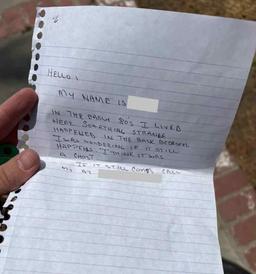 HELLO!
MY NAME IS
IN THE EARLY 80'S I LIVED
HERE SOMETHING STRANGE
HAPPENED IN THE BACK BEDROOM
I WAS WONDERING IF IT STILL
HAPPENS. I THINK IT WAS
A GHOST
IF IT STILL COMES CALL
ME AT